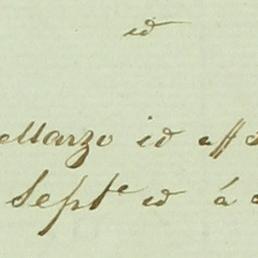 id
Marzo id aff
Septe id á